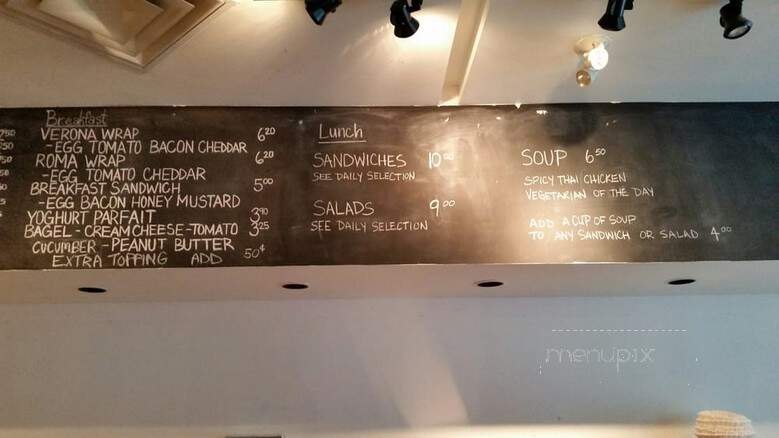 Breakfast
VERONA WRAP 6 20
- EGG TOMATO BACON CHEDDAR
ROMA WRAP 6 20
- EGG TOMATO CHEDDAR
BREAKFAST SANDWICH 5 00
- EGG BACON HONEY MUSTARD
YOGHURT PARFAIT 3 90
BAGEL - CREAM CHEESE - TOMATO 3 25
CUCUMBER - PEANUT BUTTER
EXTRA TOPPING ADD 50¢
Lunch
SANDWICHES 10 00
SEE DAILY SELECTION
SALADS 9 00
SEE DAILY SELECTION
SOUP 6 50
SPICY THAI CHICKEN
VEGETARIAN OF THE DAY
ADD A CUP OF SOUP
TO ANY SANDWICH OR SALAD 4 00
menupix